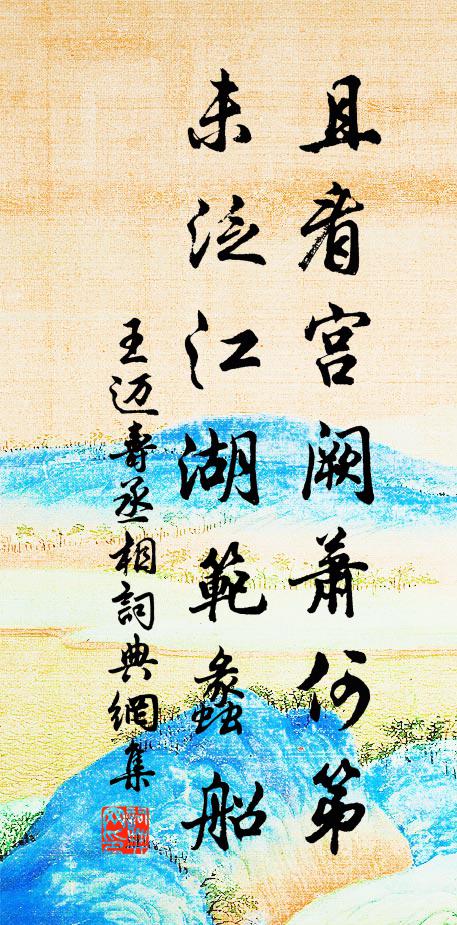 且看宫阙萧何第
未泛江湖範蠡船
王迈壽丞相詞典網集